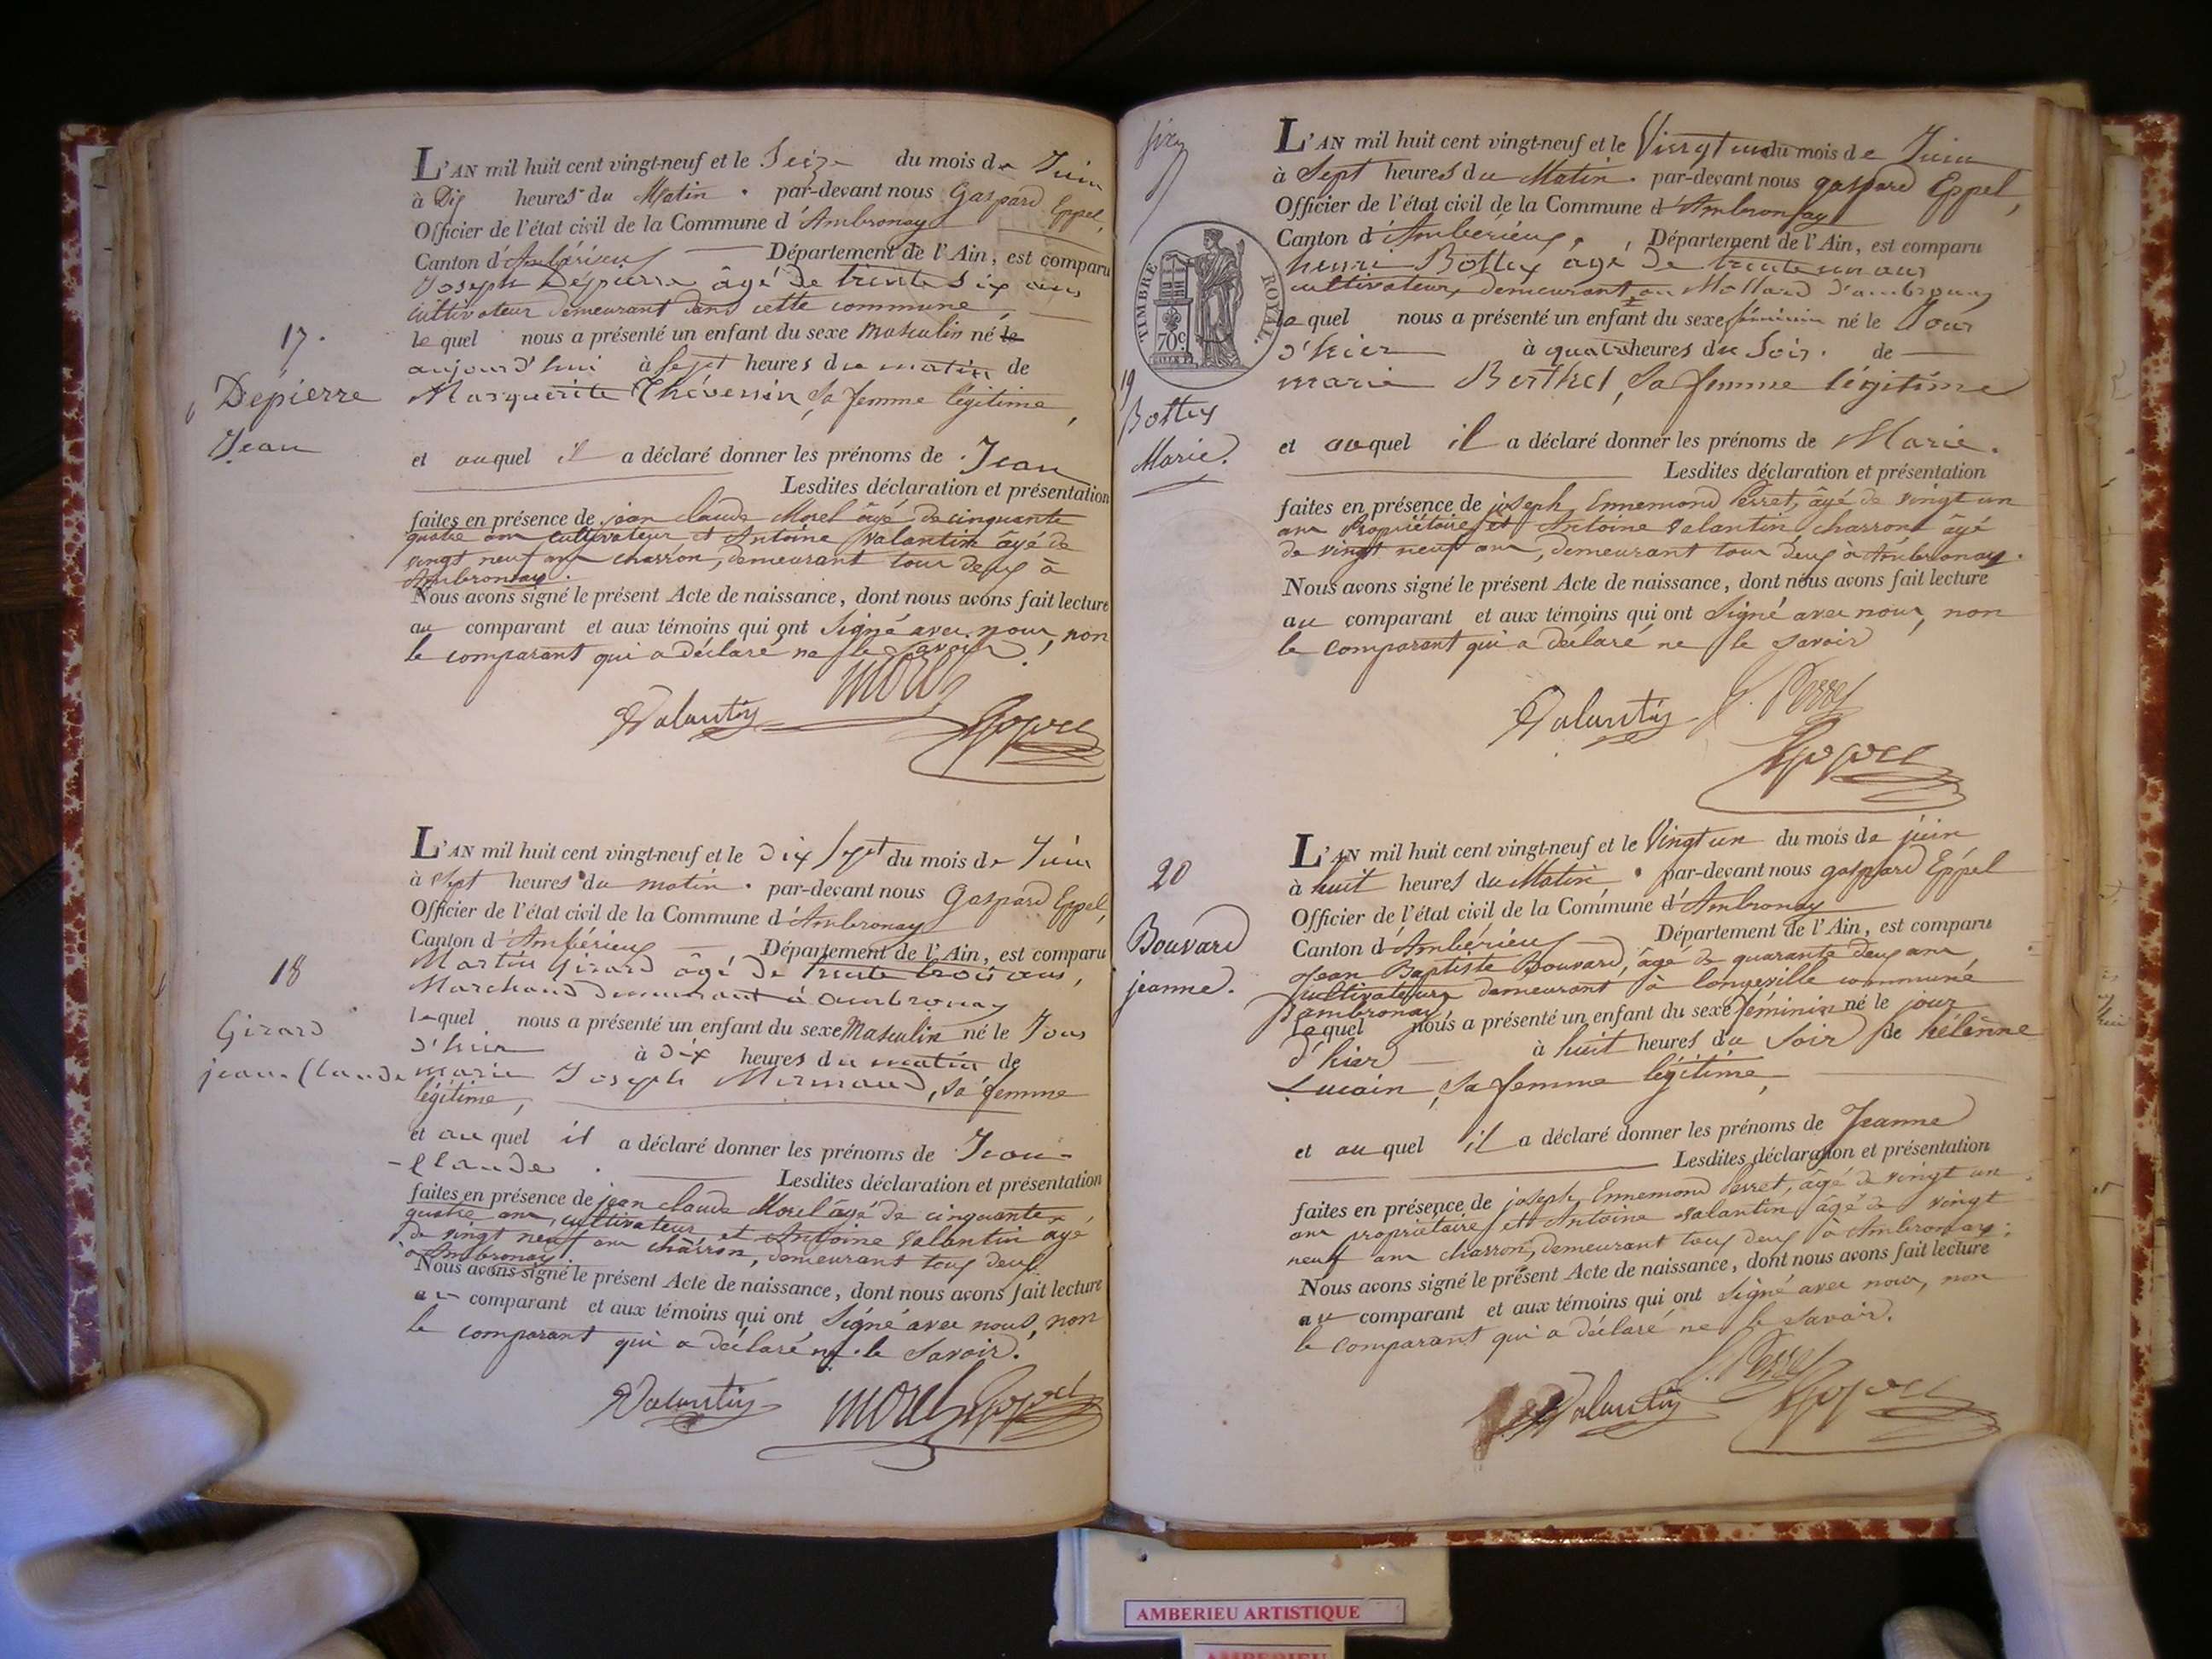 17.
Dépierre
Jean
L'AN mil huit cent vingt-neuf et le Seize du mois de Juin
à Dix heures du Matin . par-devant nous Gaspard Eppel,
Officier de l'état civil de la Commune d'Ambronay
Canton d'Ambérieux Département de l'Ain, est comparu
Joseph Dépierre âgé de trente Six ans
cultivateur demeurant dans cette commune
le quel nous a présenté un enfant du sexe Masculin né le
aujourd'hui à Sept heures du matin de
Marguerite Thévenin, Sa femme légitime,
et auquel il a déclaré donner les prénoms de Jean
Lesdites déclaration et présentation
faites en présence de jean claude Morel âgé de cinquante
quatre ans cultivateur et Antoine Valantin âgé de
vingt neuf ans charron, demeurant tous deux à
Ambronay.
Nous avons signé le présent Acte de naissance, dont nous avons fait lecture
au comparant et aux témoins qui ont Signé avec nous, non
le comparant qui a déclaré ne le Savoir.
Valantin Morel
Eppel
18
Girard
jean-Claude
L'AN mil huit cent vingt-neuf et le Dix Sept du mois de Juin
à Sept heures du matin . par-devant nous Gaspard Eppel,
Officier de l'état civil de la Commune d'Ambronay
Canton d'Ambérieux Département de l'Ain, est comparu
Martin Girard âgé de trente trois ans,
Marchand demeurant à ambronay
lequel nous a présenté un enfant du sexe Masculin né le Jour
d'hier à Dix heures du matin de
Marie Joseph , Sa femme
légitime,
et au quel il a déclaré donner les prénoms de Jean-
-claude .
Lesdites déclaration et présentation
faites en présence de jean claude Morel âgé de cinquante
quatre ans, cultivateur et Antoine Valantin âgé
de vingt neuf ans charron, demeurant tous deux
à Ambronay.
Nous avons signé le présent Acte de naissance, dont nous avons fait lecture
au comparant et aux témoins qui ont Signé avec nous, non
le comparant qui a déclaré ne le Savoir.
Valantin Morel Eppel
TIMBRE ROYAL.
70c
19
Bottex
Marie.
L'AN mil huit cent vingt-neuf et le Vingt un du mois de Juin
à Sept heures du Matin . par-devant nous gaspard Eppel,
Officier de l'état civil de la Commune d'Ambronay
Canton d'Ambérieux, Département de l'Ain, est comparu
henri Bottex âgé de trente un ans
cultivateur, demeurant au Mollard d'ambronay
le quel nous a présenté un enfant du sexe féminin né le Jour
d'hier à quatre heures du Soir. de
marie Berthet, Sa femme légitime
et auquel il a déclaré donner les prénoms de Marie.
Lesdites déclaration et présentation
faites en présence de joseph Ennemond Perret, âgé de vingt un
ans Propriétaire et Antoine Valantin charron âgé
de vingt neuf ans, demeurant tous deux à Ambronay.
Nous avons signé le présent Acte de naissance, dont nous avons fait lecture
au comparant et aux témoins qui ont Signé avec nous, non
le comparant qui a déclaré ne le savoir
Valantin J. Perret
Eppel
20
Bouvard
jeanne.
L'AN mil huit cent vingt-neuf et le Vingt un du mois de juin
à huit heures du Matin . par-devant nous gaspard Eppel
Officier de l'état civil de la Commune d'Ambronay
Canton d'Ambérieux Département de l'Ain, est comparu
Jean Baptiste Bouvard, âgé de quarante deux ans,
cultivateur demeurant à longeville commune
d'ambronay
Le quel nous a présenté un enfant du sexe féminin né le jour
d'hier à huit heures du Soir de hélènne
Lucain, Sa femme légitime,
et au quel il a déclaré donner les prénoms de Jeanne
Lesdites déclaration et présentation
faites en présence de joseph Ennemond Perret, âgé de vingt un
ans propriétaire et Antoine Valantin âgé de vingt
neuf ans charron, demeurant tous deux à Ambronay.
Nous avons signé le présent Acte de naissance, dont nous avons fait lecture
au comparant et aux témoins qui ont Signé avec nous, non
le comparant qui a déclaré ne le savoir.
Valantin J. Perret
Eppel
AMBERIEU ARTISTIQUE
AMBERIEU